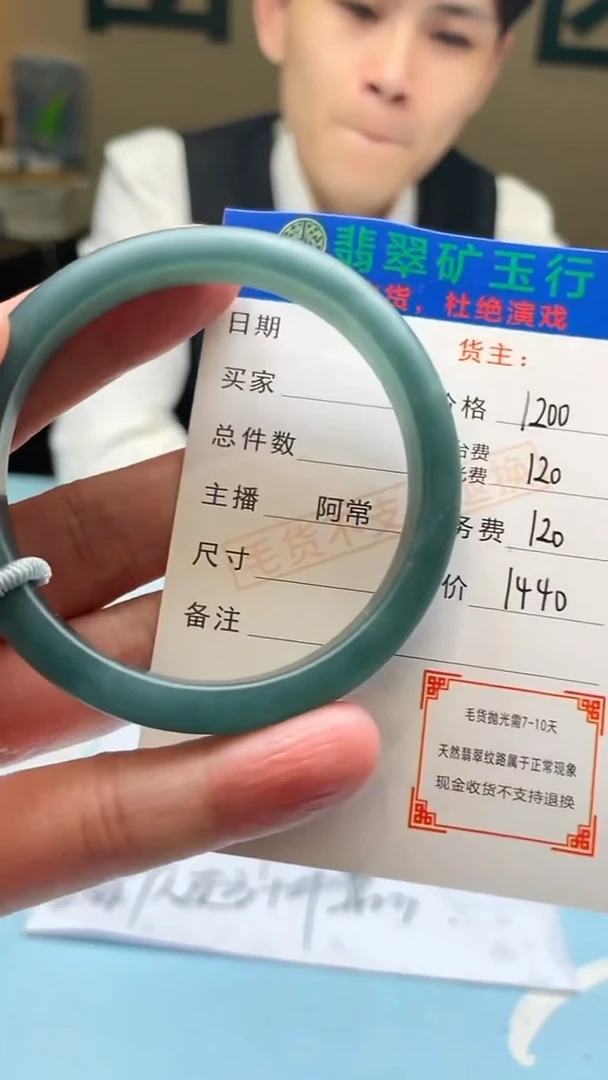 翡翠矿玉行
货，杜绝演戏
日期
货主：
买家
格 1200
总件数
台费
费 120
主播 阿常
务费 120
尺寸
价 1440
备注
毛货不支 退换
毛货抛光需7-10天
天然翡翠纹路属于正常现象
现金收货不支持退换